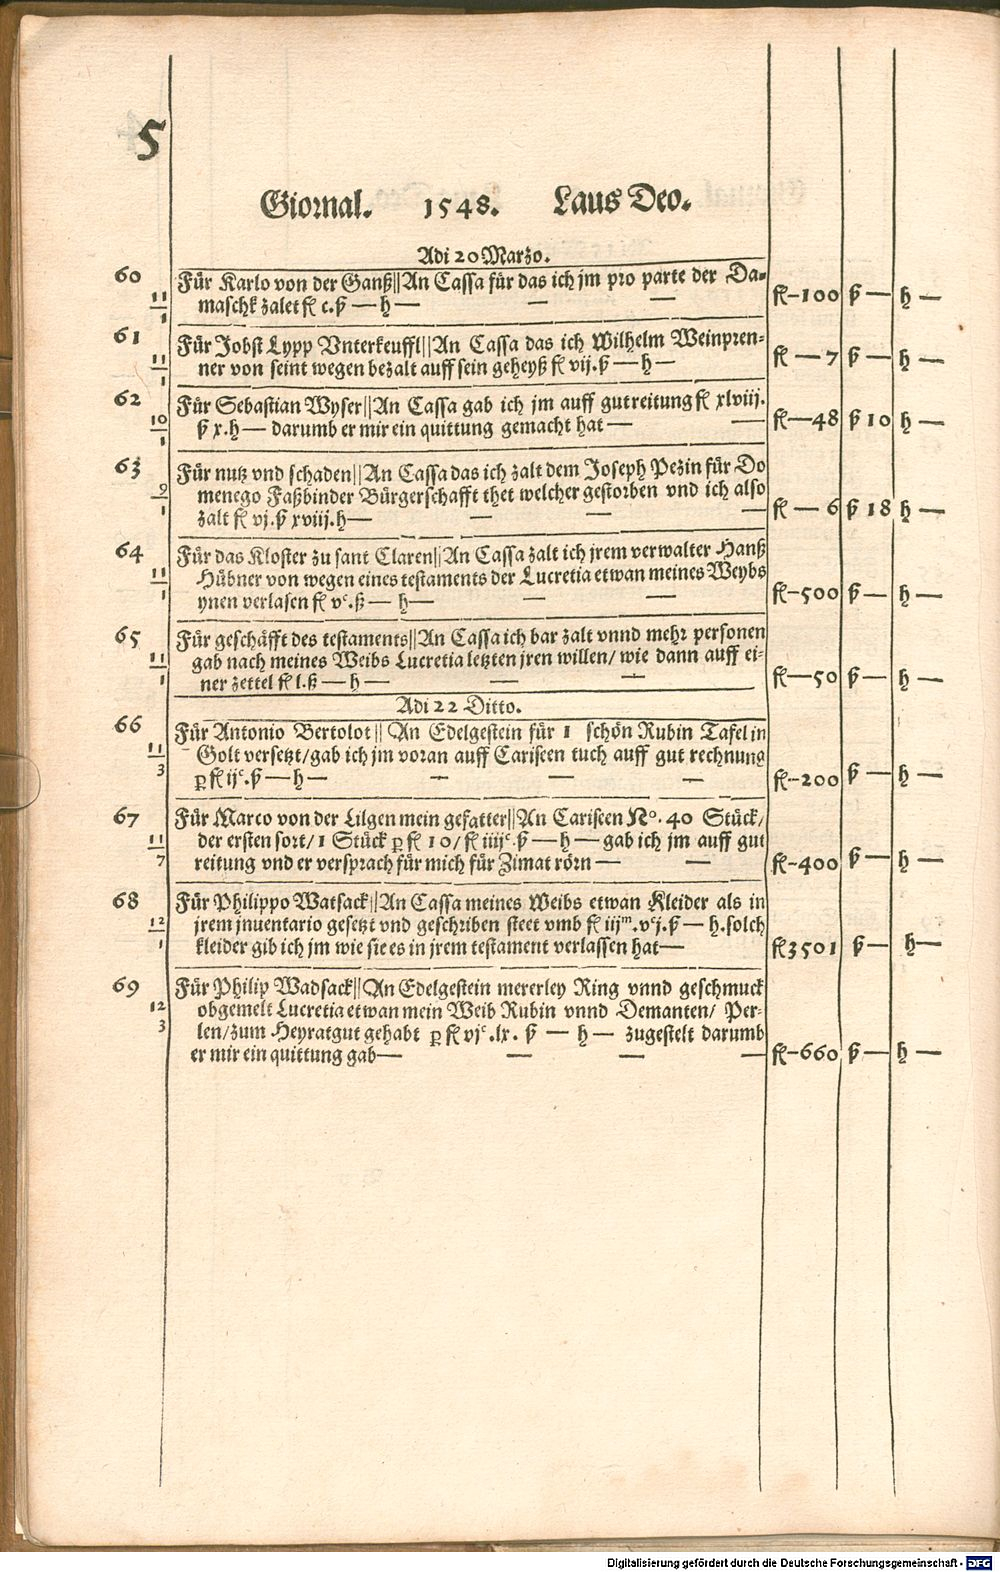 5
Giornal. 1548. Laus Deo.
Adi 20 Marzo.
60 Für Karlo von der Ganß||An Cassa für das ich jm pro parte der Da-
11/1 maschk zalet fl c.ß — h — — — fl-100 ß — h —
61 Für Jobst Lypp Vnterkeuffl||An Cassa das ich Wilhelm Weinpren-
11/1 ner von seint wegen bezalt auff sein geheyß fl vij.ß — h — fl — 7 ß — h —
62 Für Sebastian Wyser||An Cassa gab ich jm auff gutreitung fl xlviij.
10/1 ß x.h — darumb er mir ein quittung gemacht hat — — fl—48 ß 10 h —
63 Für nutz vnd schaden||An Cassa das ich zalt dem Joseph Pezin für Do
9/1 menego Faßbinder Bürgerschafft thet welcher gestorben vnd ich also
zalt fl vj.ß xviij.h — — — — fl — 6 ß 18 h —
64 Für das Kloster zu sant Claren||An Cassa zalt ich jrem verwalter Hanß
11/1 Hübner von wegen eines testaments der Lucretia etwan meines Weybs
ynen verlasen fl vᶜ.ß — h — — — fl-500 ß — h —
65 Für geschäfft des testaments||An Cassa ich bar zalt vnnd mehr personen
11/1 gab nach meines Weibs Lucretia letzten jren willen/ wie dann auff ei-
ner zettel fl l.ß — h — — — fl—50 ß — h —
Adi 22 Ditto.
66 Für Antonio Bertolot|| An Edelgestein für 1 schön Rubin Tafel in
11/3 Golt versetzt/gab ich jm voran auff Cariseen tuch auff gut rechnung
ꝑ fl ijᶜ.ß — h — — — — fl-200 ß — h —
67 Für Marco von der Lilgen mein gefatter||An Cariseen Nº. 40 Stück/
11/7 der ersten sort/1 Stück ꝑ fl 10/fl iiijᶜ.ß — h — gab ich jm auff gut
reitung vnd er versprach für mich für Zimat rörn — — fl-400 ß — h —
68 Für Philippo Watsack||An Cassa meines Weibs etwan Kleider als in
12/1 jrem jnuentario gesetzt vnd geschriben steet vmb fl iijᵐ.vᶜj.ß — h.solch
kleider gib ich jm wie sie es in jrem testament verlassen hat— fl3501 ß — h—
69 Für Philip Wadsack||An Edelgestein mererley Ring vnnd geschmuck
12/3 obgemelt Lucretia etwan mein Weib Rubin vnnd Demanten/ Per-
len/zum Heyratgut gehabt ꝑ fl vjᶜ.lx. ß — h — zugestelt darumb
er mir ein quittung gab— — — — fl-660 ß — h —
Digitalisierung gefördert durch die Deutsche Forschungsgemeinschaft - DFG